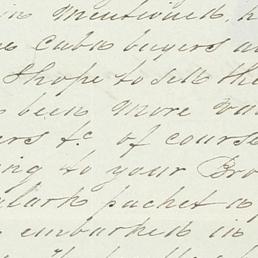 in mentioned, h
Cuba buyers a
I hope to sell the
been more va
ers &c. of course
ing to your Bro
Clark packet a
embarked in